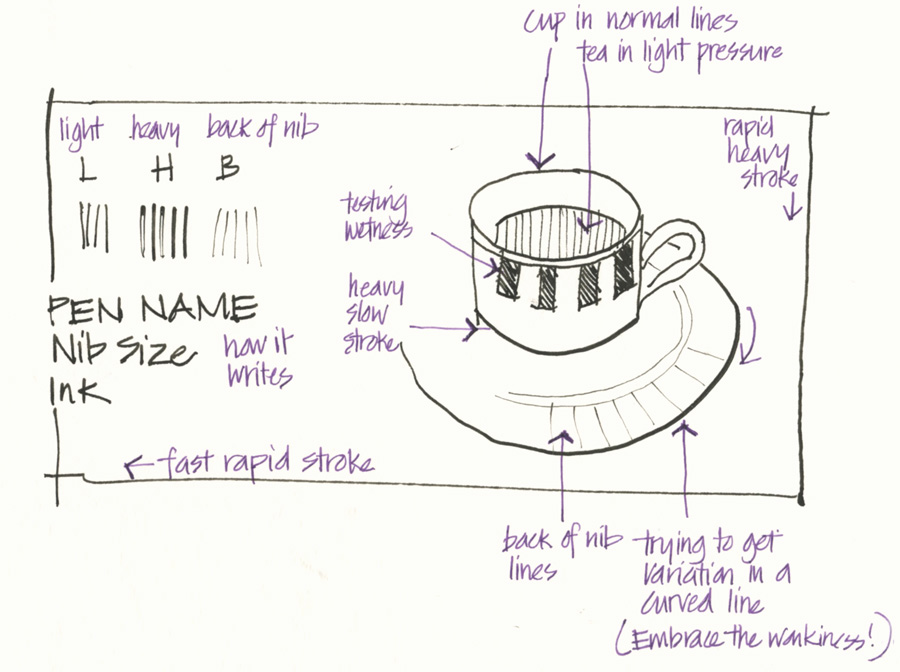 cup in normal lines
tea in light pressure
light heavy back of nib
L H B
rapid
heavy
stroke
testing
wetness
heavy
slow
stroke
PEN NAME
Nib Size
Ink
how it
writes
fast rapid stroke
back of nib
lines
trying to get
variation in a
curved line
(Embrace the wonkiness!)